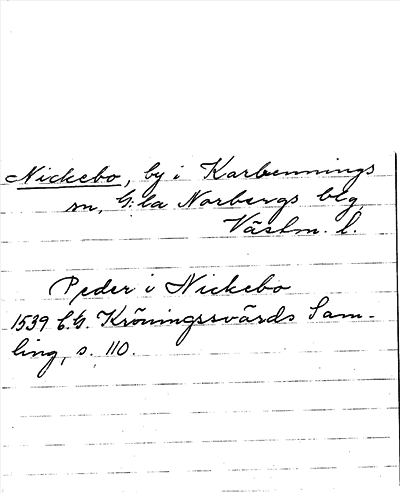 Nickebo, by i Karbennings
sn, G:la Norbergs blg,
Västm. l.
Peder i Nickebo
1539 C.G. Kröningssvärds Sam-
ling, s. 110.